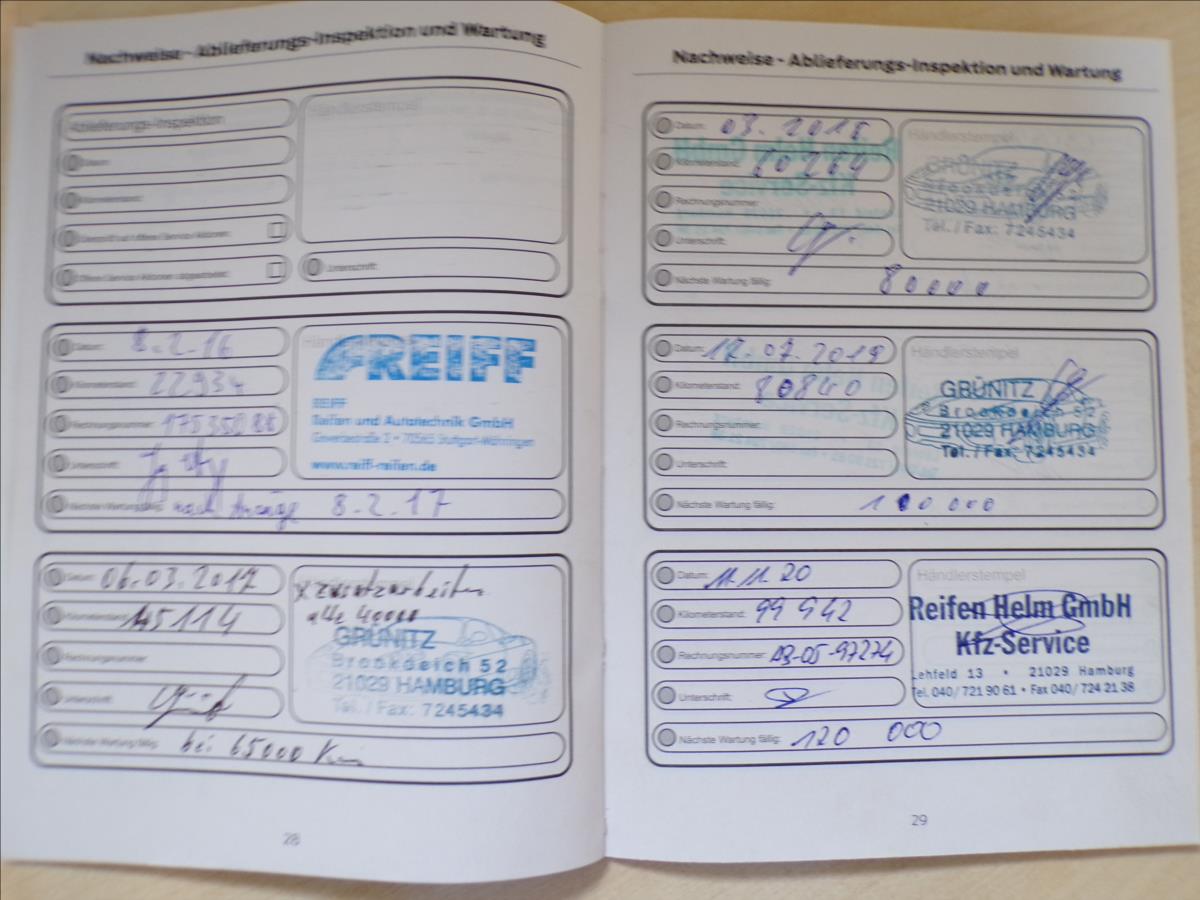 Nachweise - Ablieferungs-Inspektion und Wartung
Ablieferungs-Inspektion
Händlerstempel
Datum:
Kilometerstand:
Unterschrift:
Datum: 8.2.16
Kilometerstand: 22934
Rechnungsnummer:
Unterschrift:
REIFF
REIFF
Reifen und Autotechnik GmbH
www.reiff-reifen.de
Nächste Wartung fällig: nach Anzeige 8.2.17
Datum: 06.03.2017
Kilometerstand: 45114
Rechnungsnummer:
Unterschrift:
x Zusatzarbeiten
alle 40000
GRÜNITZ
Brookdeich 52
21029 HAMBURG
Tel. / Fax: 7245434
Nächste Wartung fällig: bei 65000 Km
28
Nachweise - Ablieferungs-Inspektion und Wartung
Datum: 03.2018
Kilometerstand: 60264
Rechnungsnummer:
Unterschrift:
Händlerstempel
GRÜNITZ
Brookdeich
21029 HAMBURG
Tel. / Fax: 7245434
Nächste Wartung fällig: 80000
Datum: 12.07.2019
Kilometerstand: 80840
Rechnungsnummer:
Unterschrift:
Händlerstempel
GRÜNITZ
Brookdeich 52
21029 HAMBURG
Tel. / Fax: 7245434
Nächste Wartung fällig: 100000
Datum: 11.11.20
Kilometerstand: 99942
Rechnungsnummer: AB-05-97274
Unterschrift:
Händlerstempel
Reifen Helm GmbH
Kfz-Service
Lehfeld 13 • 21029 Hamburg
Tel. 040/ 721 90 61 • Fax 040/ 724 21 38
Nächste Wartung fällig: 120 000
29